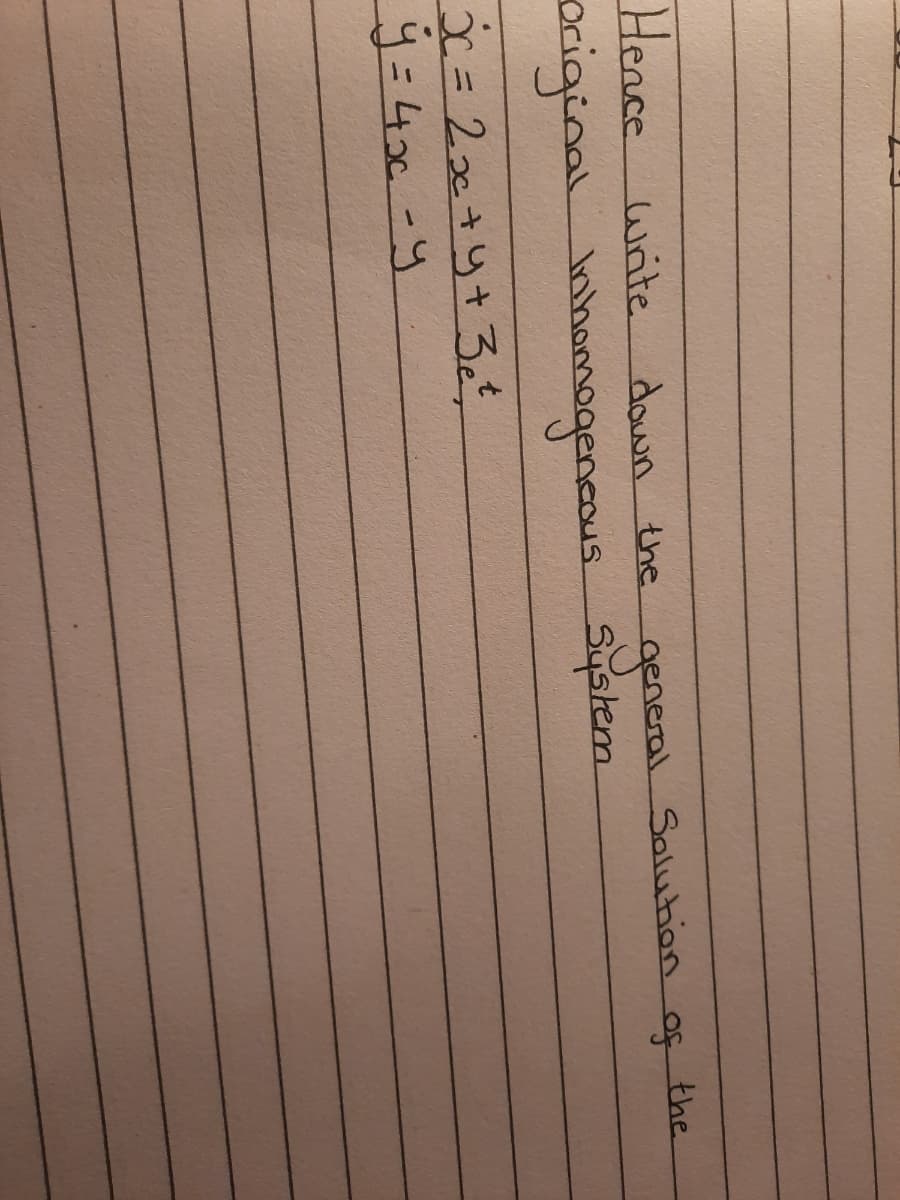 Hence write down the general Solution of the
original Inhomogeneous System
ẋ = 2x + y + 3eᵗ,
ẏ = 4x - y